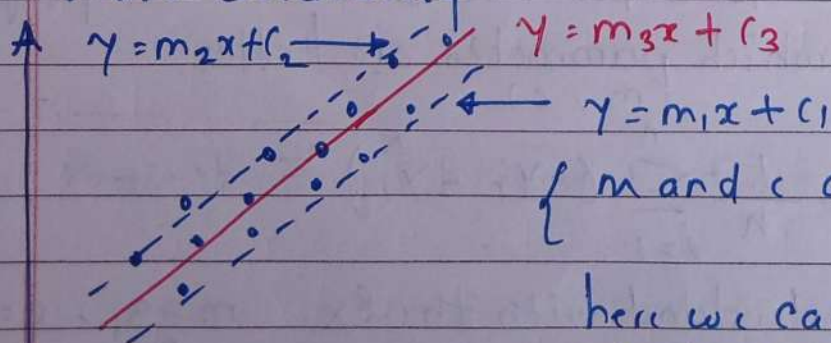 A y = m₂x + c₂ y = m₃x + c₃
y = m₁x + c₁
{ m and c
here we ca